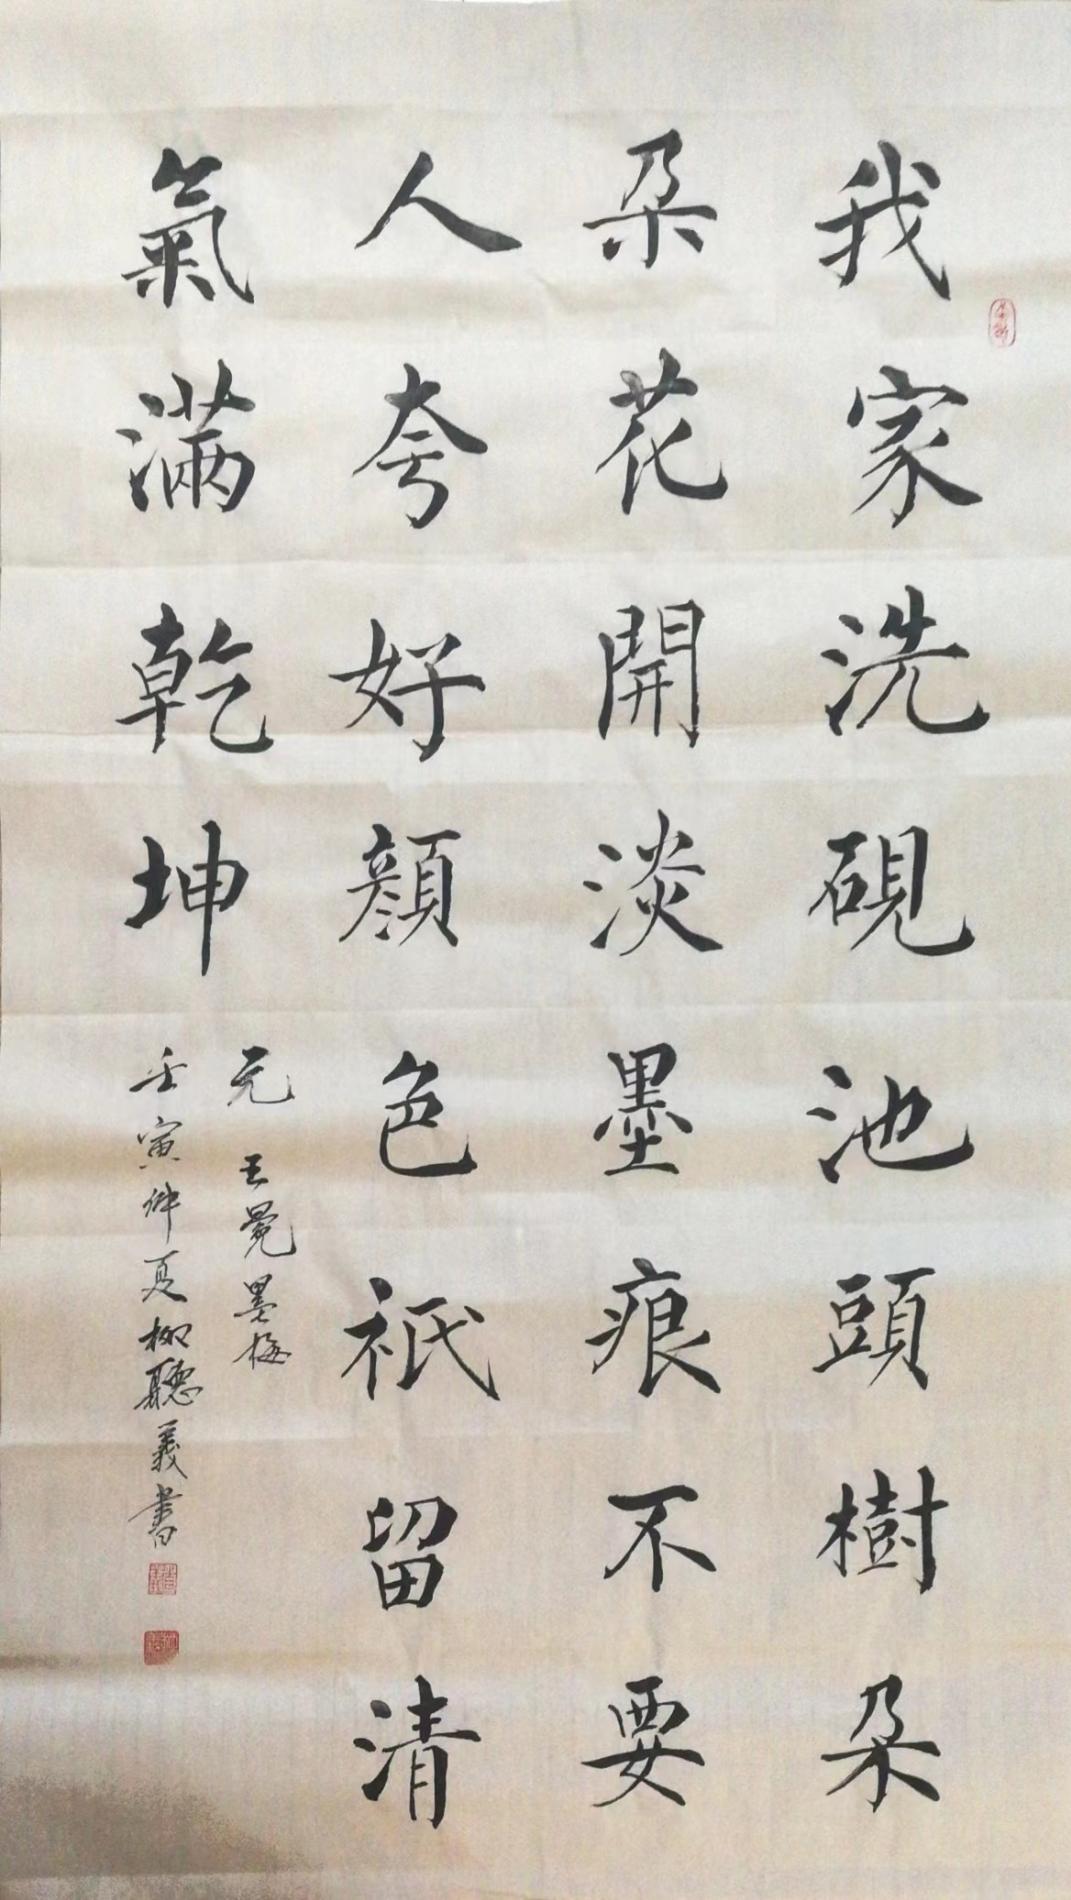 我家洗硯池頭樹朵
朵花開淡墨痕不要
人夸好顏色祇留清
氣滿乾坤
元 王冕墨梅
壬寅仲夏柳聽義書